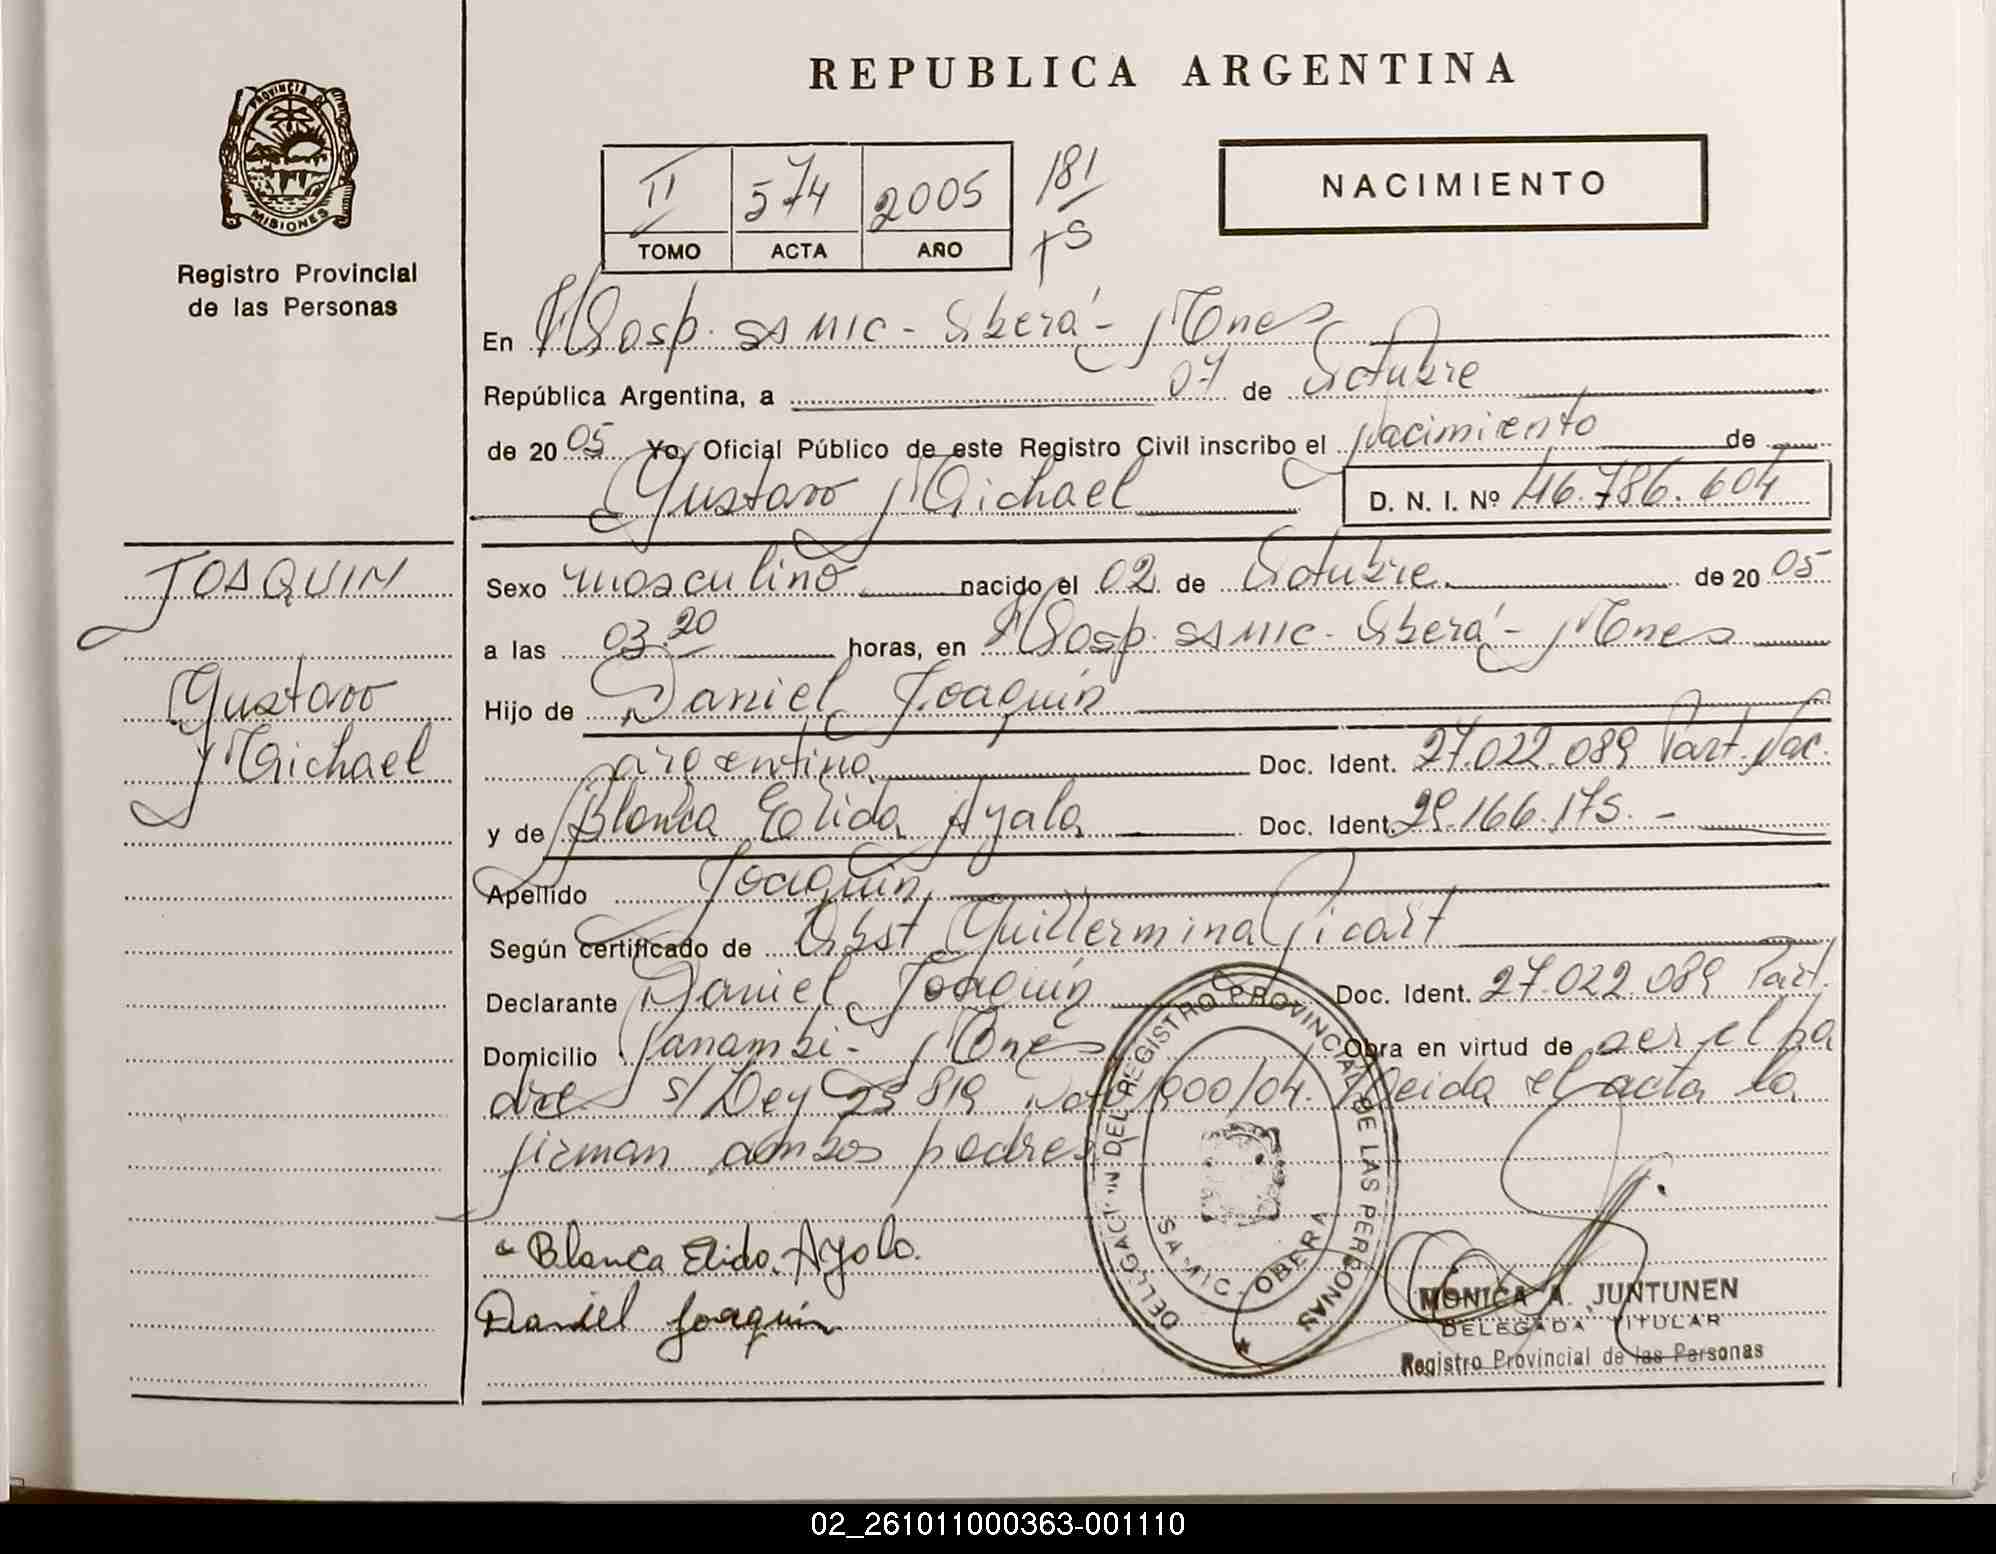 REPUBLICA ARGENTINA
PROVINCIA DE
MISIONES
Registro Provincial
de las Personas
II 574 2005 181
TOMO ACTA AÑO
NACIMIENTO
En Hosp. SAMIC - Oberá - Mnes
República Argentina, a 07 de Octubre
de 20 05 Yo, Oficial Público de este Registro Civil inscribo el Nacimiento de
Gustavo Michael D. N. I. Nº 46.786.604
JOAQUIN
Gustavo
Michael
Sexo masculino nacido el 02 de Octubre de 20 05
a las 03.20 horas, en Hosp. SAMIC - Oberá - Mnes
Hijo de Daniel Joaquín
argentino Doc. Ident. 27.022.089 Part. Nac.
y de Blanca Elida Ayala Doc. Ident. 29.166.175.-
Apellido Joaquín
Según certificado de Obst Guillermina Picart
Declarante Daniel Joaquín Doc. Ident. 27.022.089 Part.
Domicilio Panambí - Mnes Obra en virtud de ser el pa
dre s/ Ley 25819 1900/04. Leida el acta la
firman ambos padres
Blanca Elida Ayala.
Daniel Joaquin
DELEGACION DEL REGISTRO PROVINCIAL DE LAS PERSONAS
SAMIC - OBERA
MONICA A. JUNTUNEN
DELEGADA TITULAR
Registro Provincial de las Personas
02_261011000363-001110